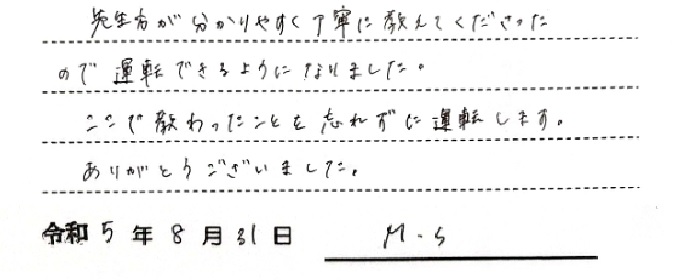 先生方が分かりやすく丁寧に教えてくださった
ので運転できるようになりました。
ここで教わったことを忘れずに運転します。
ありがとうございました。
令和5年8月31日 M.S